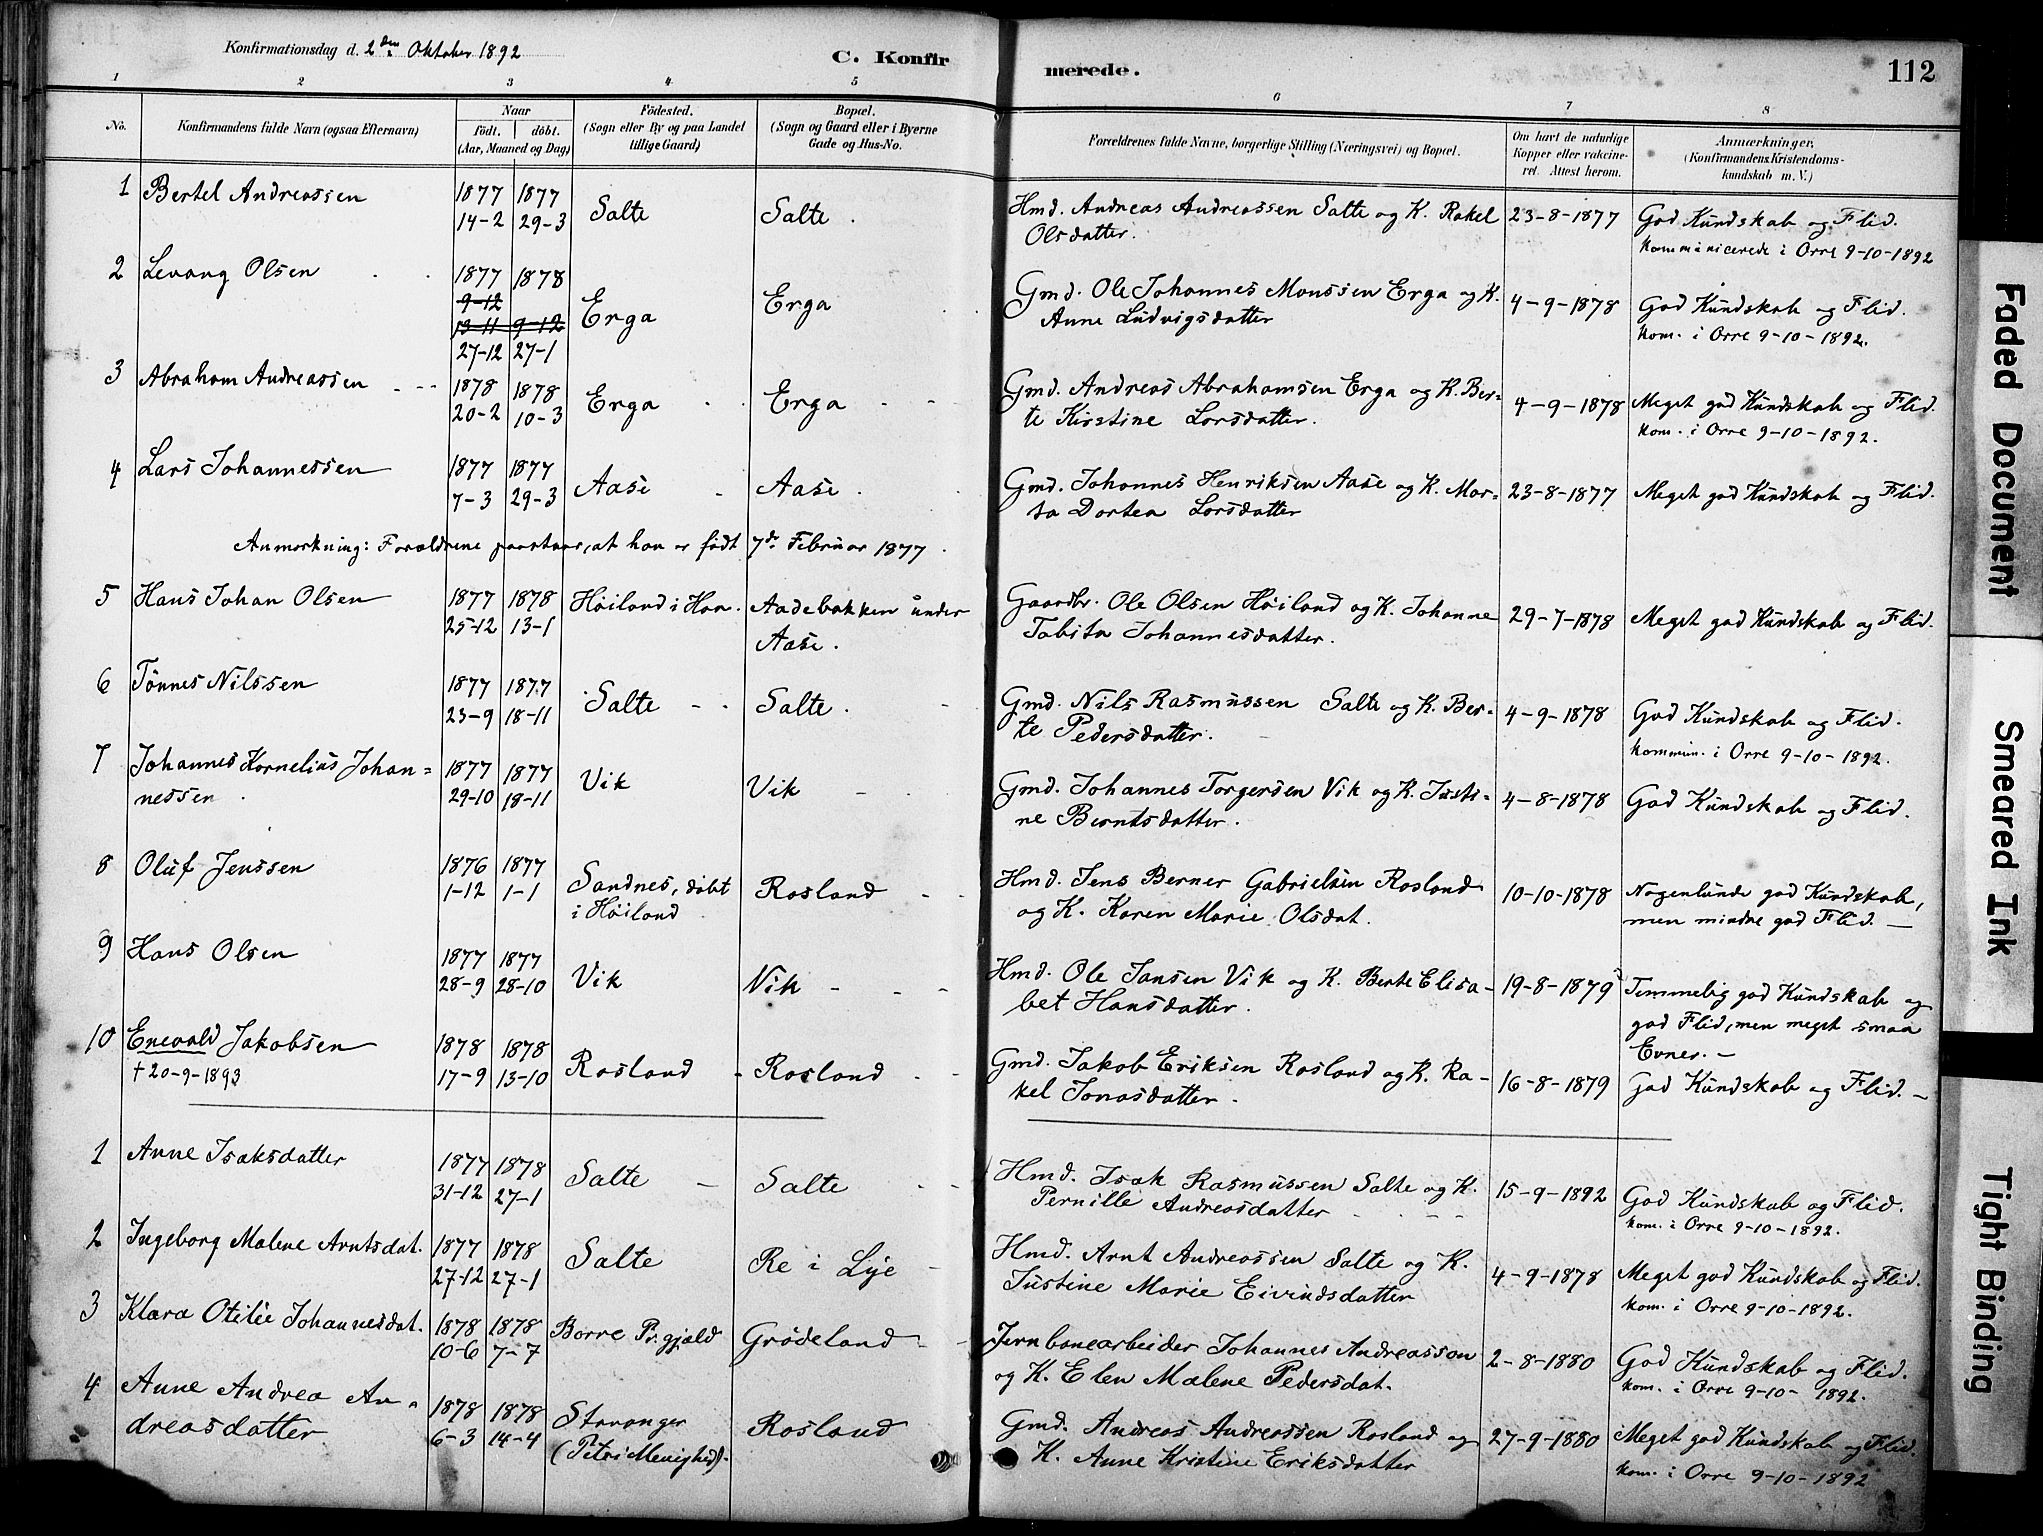 Konfirmationsdag d. 2den Oktober 1892
C. Konfirmerede.
112
1 2 3 4 5 6 7 8
No.
Konfirmandens fulde Navn (ogsaa Efternavn)
Naar
født. døbt.
(Aar, Maaned og Dag)
Fødested.
(Sogn eller By og paa Landet
tillige Gaard)
Bopæl.
(Sogn og Gaard eller i Byerne
Gade og Hus-No.
Forældrenes fulde Navne, borgerlige Stilling (Næringsvei) og Bopæl.
Om havt de naturlige
Kopper eller vakcine-
ret. Attest herom.
Anmærkninger,
(Konfirmandens Kristendoms-
kundskab m. V.)
1 Bertel Andreassen 1877 1877 Salte Salte. Hmd. Andreas Andreassen Salte og K. Rakel 23-8-1877 God Kundskab og Flid.
14-2 29-3 Olsdatter. kommunicerede i Orre 9-10-1892
2 Levang Olsen 1877 1878 Erga Erga Gmd. Ole Johannes Monssen Erga og K. 4-9-1878 God Kundskab og Flid.
9-12 Anne Ludvigsdatter kom. i Orre 9-10-1892.
13-11 9-12
27-12 27-1
3 Abraham Andreassen 1878 1878 Erga Erga Gmd. Andreas Abrahamsen Erga og K. Ber- 4-9-1878 Meget god Kundskab og Flid.
20-2 10-3 te Kirstine Larsdatter. kom. i Orre 9-10-1892.
4 Lars Johannessen 1877 1877 Aase Aase. Gmd. Johannes Henriksen Aase og K. Mar- 23-8-1877 Meget god Kundskab og Flid.
7-3 29-3 ta Dortea Larsdatter
Anmærkning: Forældrene paastaar, at han er født 7de Februar 1877.
5 Hans Johan Olsen 1877 1878 Høiland i Haa. Aadebakken under Gaardbr. Ole Olsen Høiland og K. Johanne 29-7-1878 Meget god Kundskab og Flid.
25-12 13-1 Aase. Tabita Johannesdatter.
6 Tønnes Nilssen 1877 1877 Salte Salte. Gmd. Nils Rasmussen Salte og K. Ber- 4-9-1878 God Kundskab og Flid.
23-9 18-11 te Pedersdatter. kommun. i Orre 9-10-1892.
7 Johannes Kornelius Johan= 1877 1877 Vik Vik Gmd. Johannes Torgersen Vik og K. Justi- 4-8-1878 God Kundskab og Flid.
nessen. 29-10 18-11 ne Berntsdatter.
8 Oluf Jenssen 1876 1877 Sandnes, døbt Rosland Hmd. Jens Berner Gabrielsen Rosland 10-10-1878 Nogenlunde god Kundskab,
1-12 1-1 i Høiland og K. Karen Marie Olsdat. men mindre god Flid.
9 Hans Olsen 1877 1877 Vik Vik Hmd. Ole Jansen Vik og K. Berte Elisa- 19-8-1879 Temmelig god Kundskab og
28-9 28-10 bet Hansdatter. god Flid, men meget smaa
Evner.
10 Enevald Jakobsen 1878 1878 Rosland Rosland Gmd. Jakob Eriksen Rosland og K. Ra- 16-8-1879 God Kundskab og Flid.
† 20-9-1893 17-9 13-10 kel Jonasdatter.
1 Anne Isaksdatter 1877 1878 Salte Salte Hmd. Isak Rasmussen Salte og K. 15-9-1892 God Kundskab og Flid.
31-12 27-1 Pernille Andreasdatter kom. i Orre 9-10-1892.
2 Ingeborg Malene Arntsdat. 1877 1878 Salte Re i Lye Hmd. Arnt Andreassen Salte og K. 4-9-1878 Meget god Kundskab og Flid.
27-12 27-1 Justine Marie Eivindsdatter kom. i Orre 9-10-1892.
3 Klara Otilie Johannesdat. 1878 1878 Borre Pr.gjæld Grødeland Jernbanearbeider Johannes Andreasson 2-8-1880 God Kundskab og Flid.
10-6 7-7 og K. Elen Malene Pedersdat. kom. i Orre 9-10-1892.
4 Anne Andrea An= 1878 1878 Stavanger Rosland Gmd. Andreas Andreassen Rosland og 27-9-1880 Meget god Kundskab og Flid.
dreasdatter 6-3 14-4 (Petri Menighed). K. Anne Kristine Eriksdatter kom. i Orre 9-10-1892
Faded Document
Smeared Ink
Tight Binding